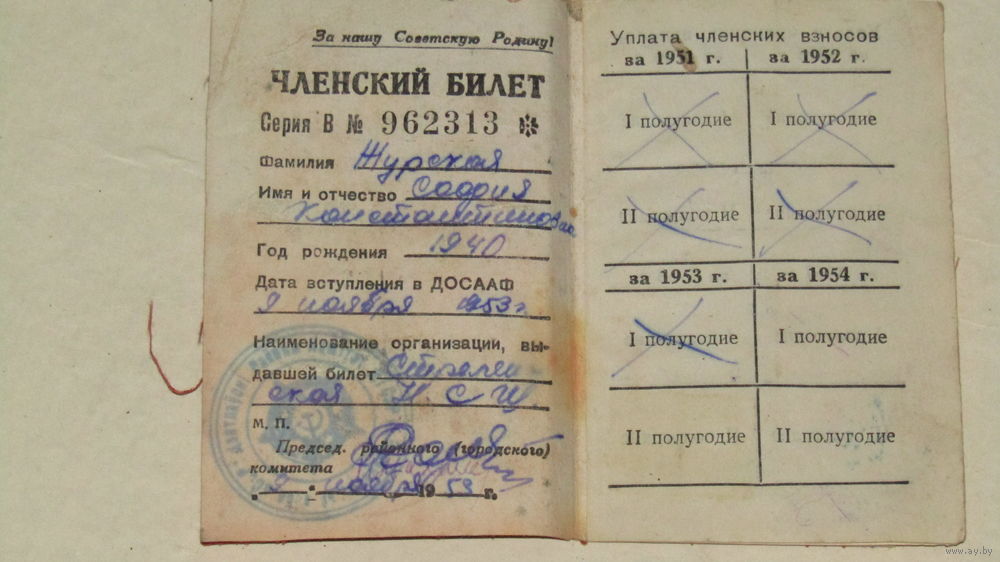 За нашу Советскую Родину!
ЧЛЕНСКИЙ БИЛЕТ
Серия В № 962313 ✻
Фамилия Журская
Имя и отчество София
Константиновна
Год рождения 1940
Дата вступления в ДОСААФ
9 ноября 1953 г
Наименование организации, вы-
давшей билет
ская Н С Ш
М. П.
Председ. районного (городского)
комитета
9 ноября 1953 г.
Уплата членских взносов
за 1951 г. за 1952 г.
I полугодие I полугодие
II полугодие II полугодие
за 1953 г. за 1954 г.
I полугодие I полугодие
II полугодие II полугодие
www.ay.by